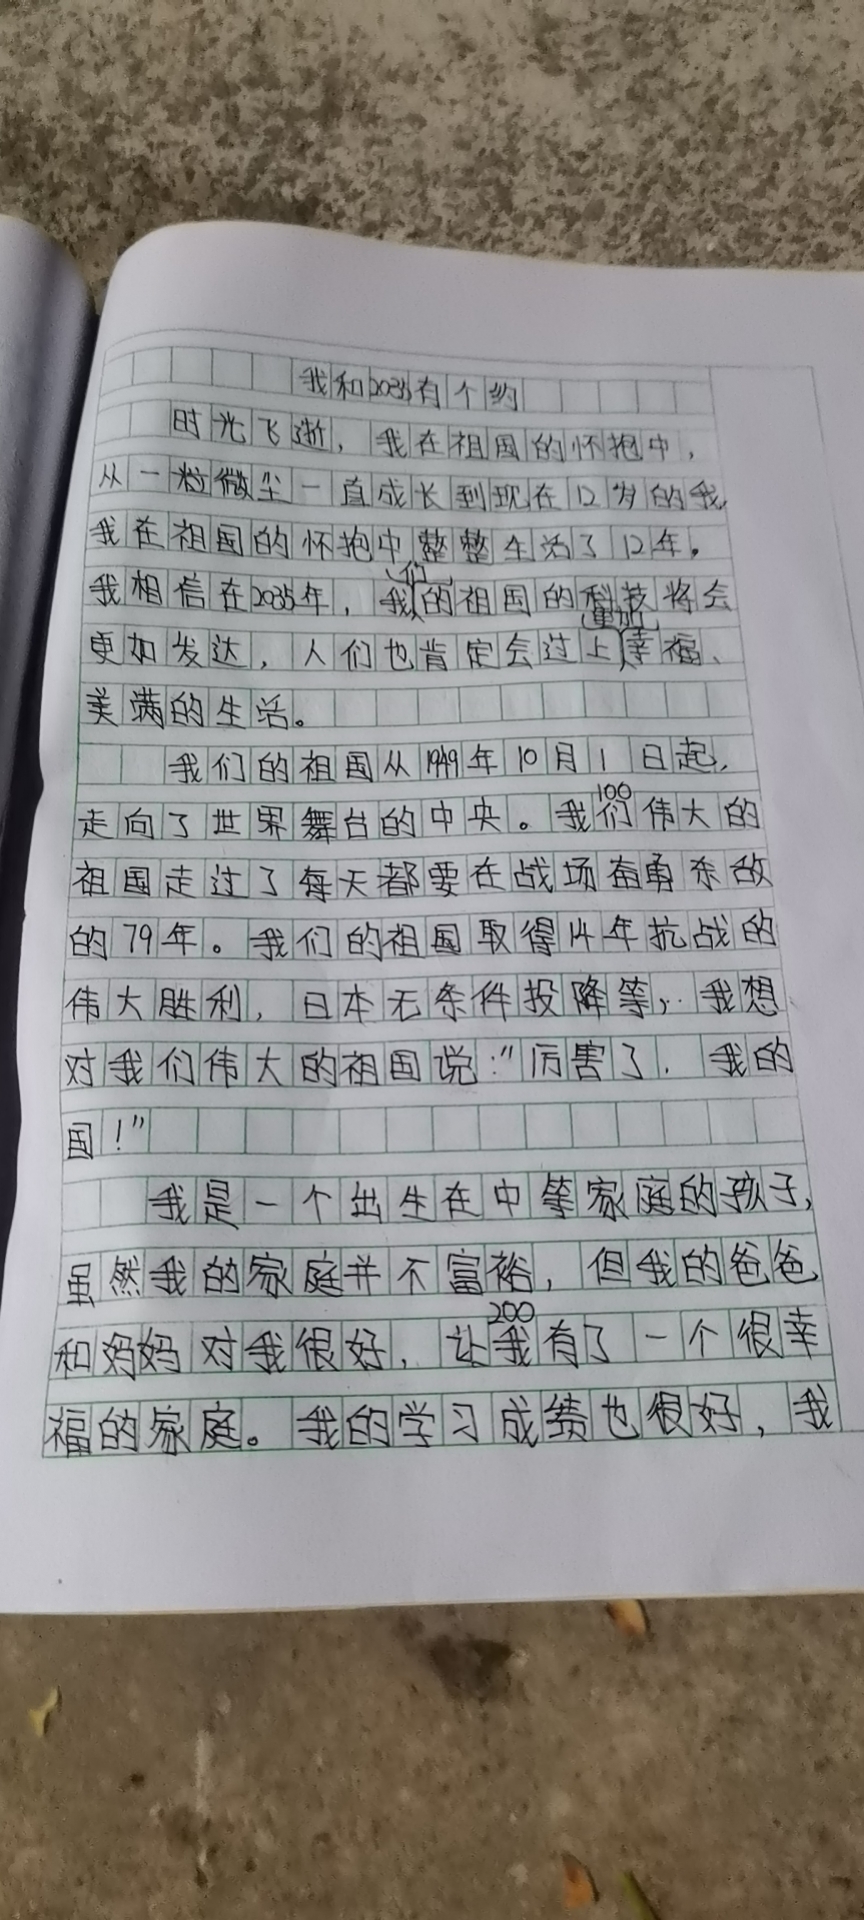 我和2035有个约
时光飞逝，我在祖国的怀抱中，
从一粒微尘一直成长到现在12岁的我，
我在祖国的怀抱中整整生活了12年。
们
我相信在2035年，我的祖国的科技将会
更加
更加发达，人们也肯定会过上幸福、
美满的生活。
我们的祖国从1949年10月1日起，
走向了世界舞台的中央。我们伟大的
100
祖国走过了每天都要在战场奋勇杀敌
的79年。我们的祖国取得14年抗战的
伟大胜利，日本无条件投降等，我想
对我们伟大的祖国说："厉害了，我的
国！"
我是一个出生在中等家庭的孩子，
虽然我的家庭并不富裕，但我的爸爸
200
和妈妈对我很好，让我有了一个很幸
福的家庭。我的学习成绩也很好，我